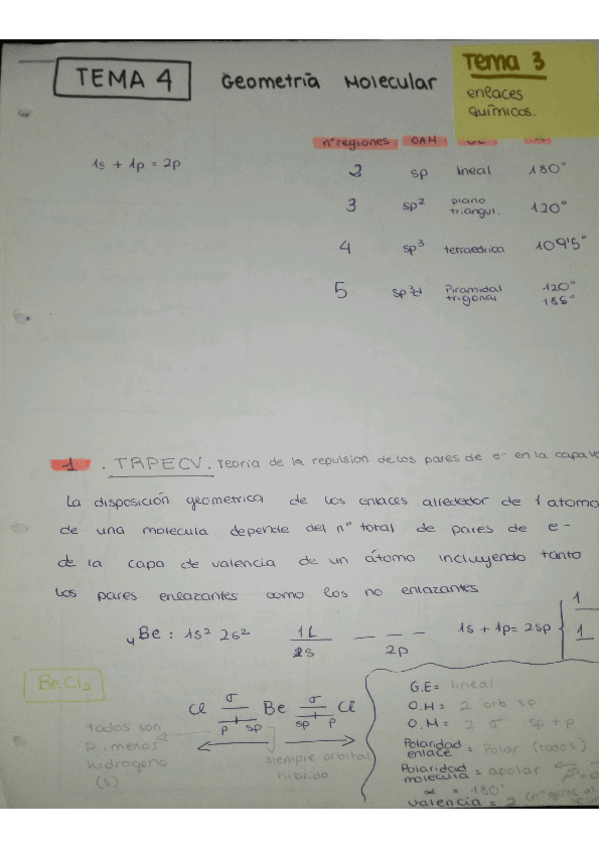 TEMA 4 Geometría Molecular
Tema 3
enlaces
químicos.
nº regiones OAH
1s + 1p = 2p
2 sp lineal 180°
3 sp² plano triangul. 120°
4 sp³ tetraedrica 109'5°
5 sp³d Piramidal trigonal 120°
1. TRPECV. Teoría de la repulsion de los pares de e- en la capa
La disposición geometrica de los enlaces alrrededor de 1 atomo
de una molecula depende del nº total de pares de e-
de la capa de valencia de un átomo incluyendo tanto
los pares enlazantes como los no enlazantes
4Be : 1s² 2s² 2s 2p 1s + 1p = 2sp { 1 1
BeCl₂
Cl σ Be σ Cl
p sp sp p
todos son
p, menos
hidrogeno
(s)
siempre orbital
hibrido
G.E = lineal
O.H = 2 orb sp
O.M = 2 σ sp + p
Polaridad enlace = Polar (todos)
Polaridad molecula = apolar
α = 180°
valencia = 2